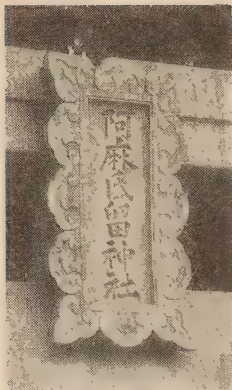 阿麻氐留神社